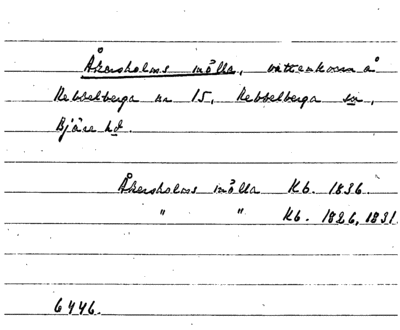 Åkersholms mölla, vattenkvarn å
Rebbelberga nr 15, Rebbelberga sn,
Bjäre hd.
Åkersholms mölla Kb. 1836.
" " Kb. 1826, 1831.
6446.